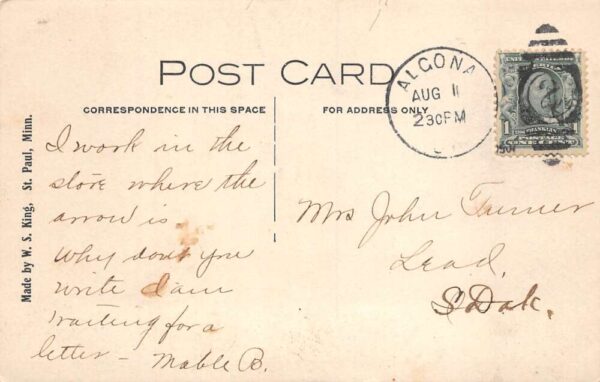 POST CARD
CORRESPONDENCE IN THIS SPACE
FOR ADDRESS ONLY
ALGONA
AUG 11
230PM
FRANKLIN
1 POSTAGE 1
ONE CENT
Made by W. S. King, St. Paul, Minn.
I work in the
store where the
arrow is
Why dont you
write I am
waiting for a
letter – Mable B.
Mrs John Turner
Lead,
S Dak.